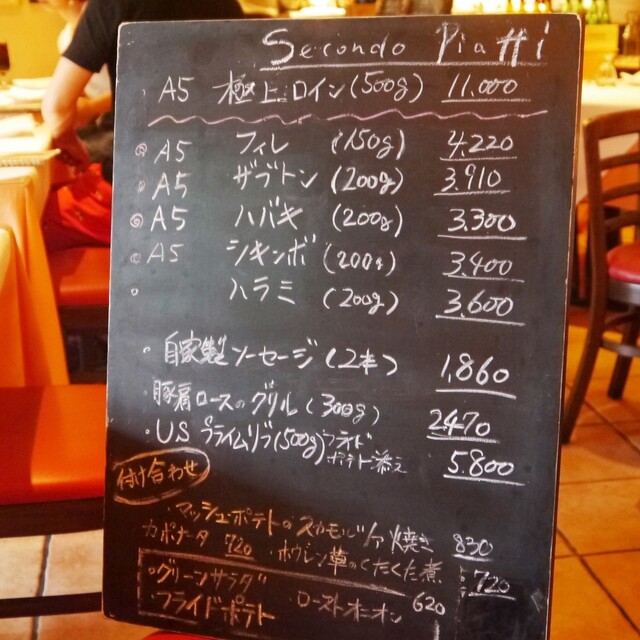 Secondo Piatti
A5 極上ロイン(500g) 11,000
A5 フィレ (150g) 4,220
A5 ザブトン (200g) 3,910
A5 ハバキ (200g) 3,300
A5 シキンボ (200g) 3,400
ハラミ (200g) 3,600
自家製ソーセージ(2本) 1,860
豚肩ロースのグリル(300g) 2470
US プライムリブ(500g) フライドポテト添え 5.800
付け合わせ
・マッシュポテトのスカモルツァ焼き 830
カポナータ 720 ・ホウレン草のくたくた煮 720
グリーンサラダ
・フライドポテト ・ローストオニオン 620